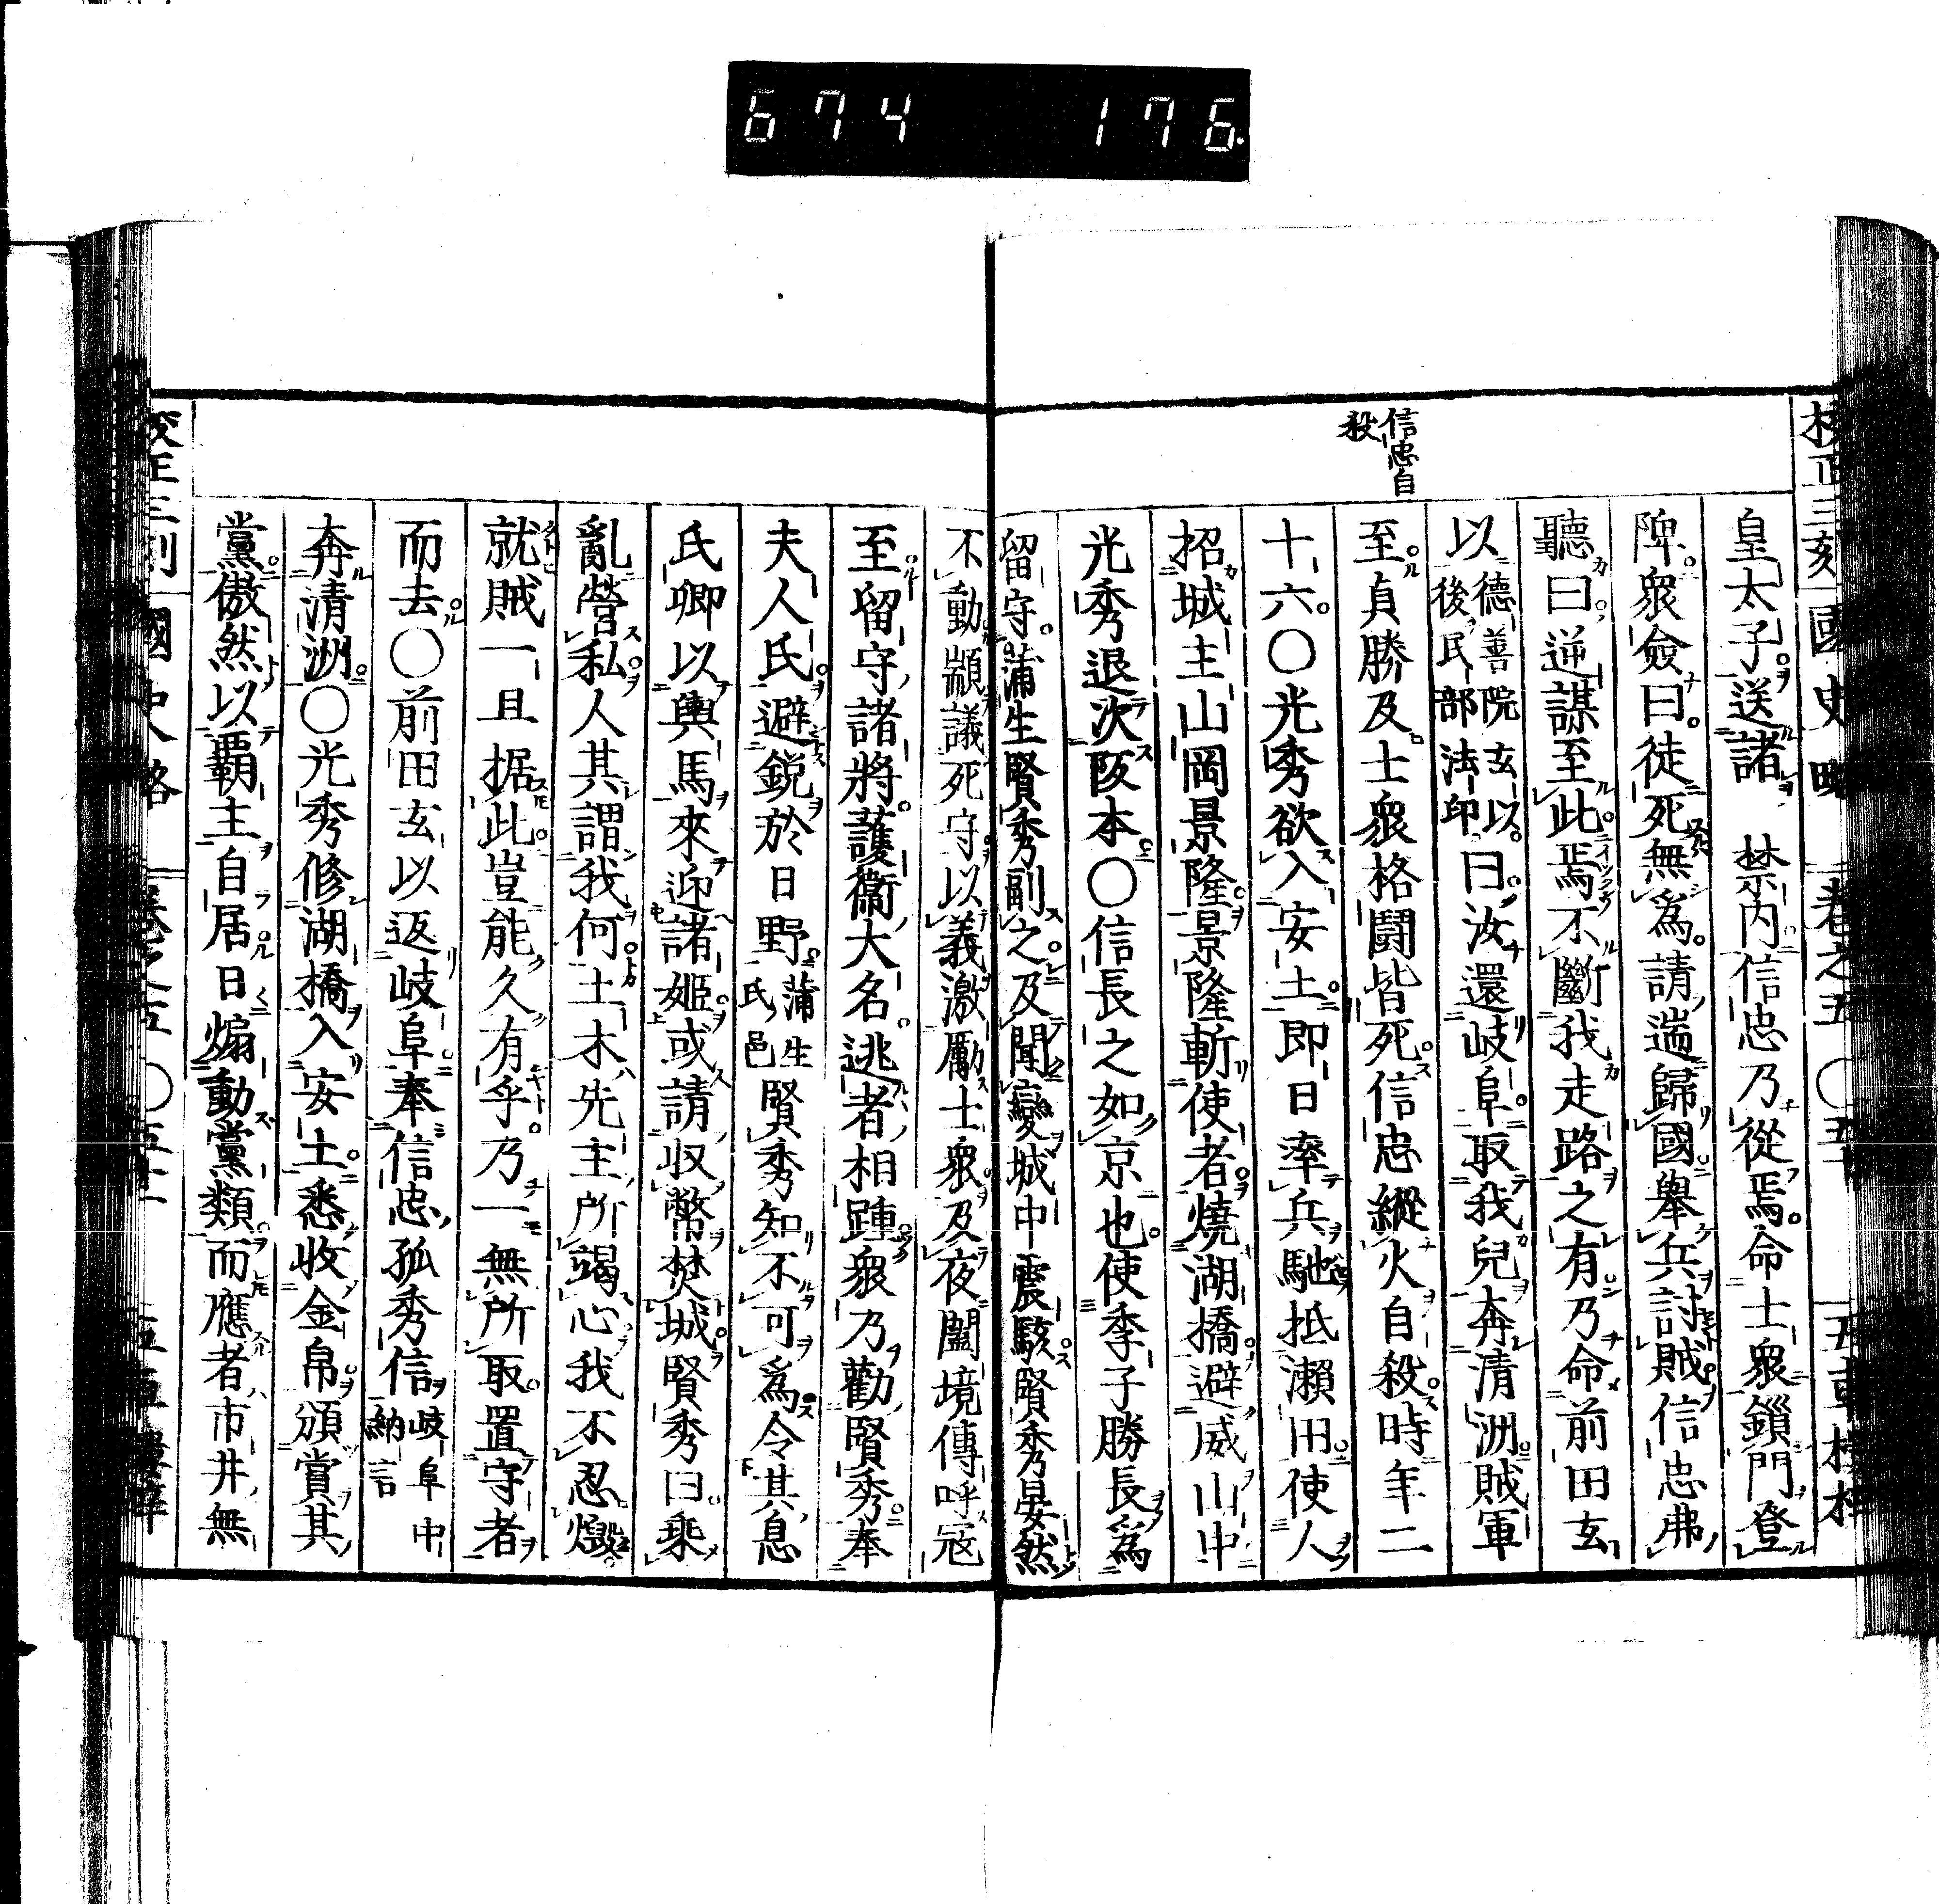 674 176
信忠自
殺
皇太子送諸 禁内信忠乃從焉命士衆鎖門登
陴衆僉曰徒死無爲請遄歸國舉兵討賊信忠弗
聽曰逆謀至此焉不斷我走路之有乃命前田玄
以德善院玄以後民部法印曰汝還岐阜取我兒奔清洲賊軍
至貞勝及士衆格鬪皆死信忠縱火自殺時年二
十六〇光秀欲入安土即日率兵馳抵瀨田使人
招城主山岡景隆景隆斬使者燒湖橋避威山中
光秀退次阪本〇信長之如京也使季子勝長爲
留守蒲生賢秀副之及聞變城中震駭賢秀晏然
不動顓議死守以義激厲士衆及夜闔境傳呼寇
至留守諸將護衞大名逃者相踵衆乃勸賢秀奉
夫人氏避鋭於日野蒲生氏邑賢秀知不可爲令其息
氏卿以輿馬來迎諸姬或請収幣焚城賢秀曰乘
亂營私人其謂我何土木先主所竭心我不忍燬
就賊一且据此豈能久有乎乃一無所取置守者
而去〇前田玄以返岐阜奉信忠孤秀信岐阜中納言
奔清洲〇光秀修湖橋入安土悉收金帛頒賞其
黨傲然以覇主自居日煽動黨類而應者市井無
國史略